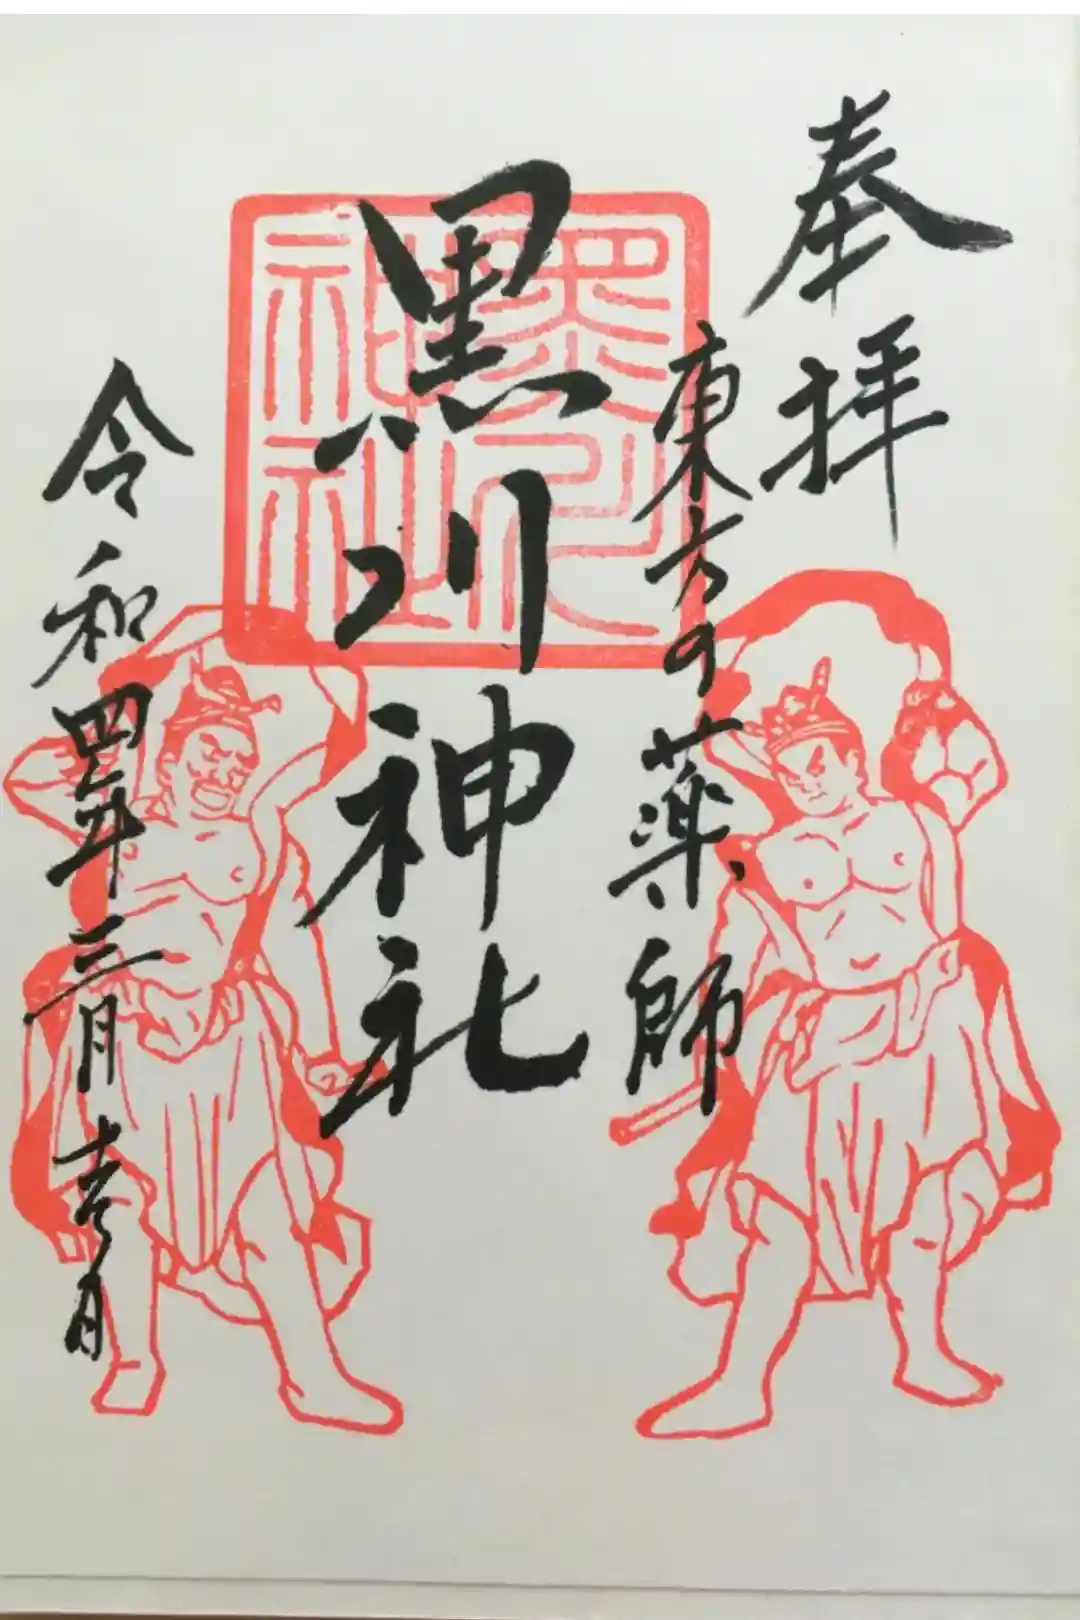 奉拝
東方の薬師
黒川神社
黒川神社
令和四年三月吉月